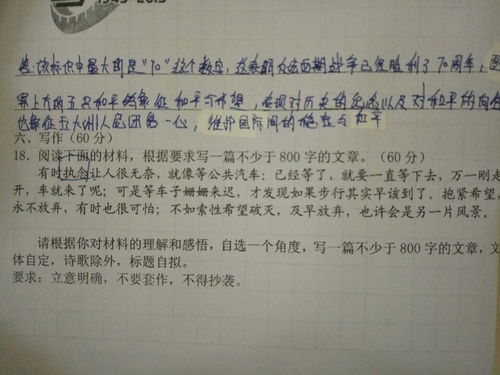 1945-2015
答:该标识中最大的是"70"这个数字,这表明反法西斯战争已经胜利了70周年,图
案上方的五只和平鸽象征和平与希望,表现对历史的纪念以及对和平的向往
也象征五大洲人民团结一心,维护国际间的稳定与和平
六、写作(60 分)
18. 阅读下面的材料,根据要求写一篇不少于 800 字的文章。(60 分)
有时执念让人很无奈,就像等公共汽车:已经等了,就要一直等下去,万一刚走
开,车就来了呢;可是等车子姗姗来迟,才发现如果步行其实早该到了。抱紧希望,
永不放弃,有时也很可怕;不如索性希望破灭,及早放弃,也许会是另一片风景。
请根据你对材料的理解和感悟,自选一个角度,写一篇不少于 800 字的文章,文
体自定,诗歌除外,标题自拟。
要求:立意明确,不要套作,不得抄袭。